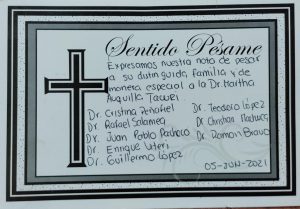 Sentido Pésame
Expresamos nuestra nota de pesar
a su distinguida familia y de
manera especial a la Dr. Martha
Auquilla Tacuri.
Dr. Cristina Peñafiel
Dr. Rafael Salamea
Dr. Juan Pablo Pacheco
Dr. Enrique
Dr. Guillermo López
Dr. Teodoro López
Dr. Christian Pacheco
Dr. Ramon Bravo
05-JUN-2021